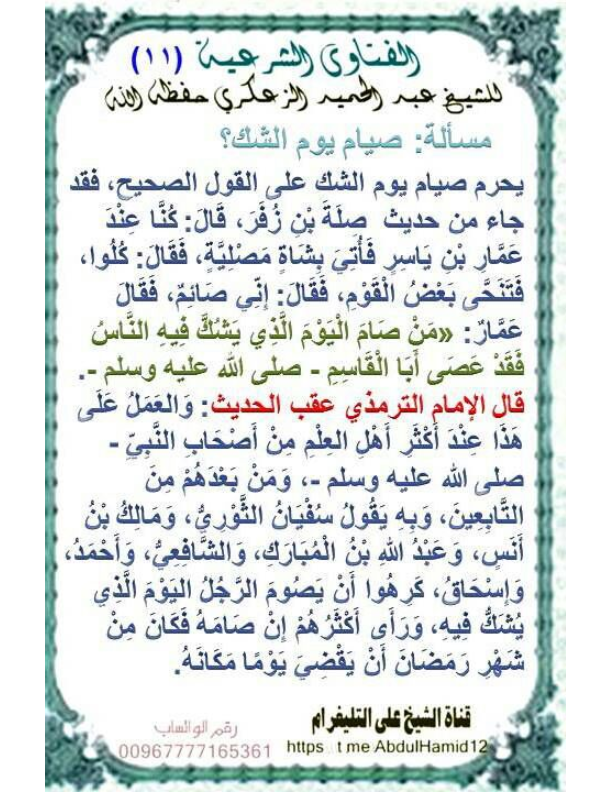 الفتاوى الشرعية (١١)
للشيخ عبد الحميد الزعكري حفظه الله
مسألة: صيام يوم الشك؟
يحرم صيام يوم الشك على القول الصحيح، فقد
جاء من حديث صِلَةَ بْنِ زُفَرَ، قَالَ: كُنَّا عِنْدَ
عَمَّارِ بْنِ يَاسِرٍ فَأُتِيَ بِشَاةٍ مَصْلِيَّةٍ، فَقَالَ: كُلُوا،
فَتَنَحَّى بَعْضُ الْقَوْمِ، فَقَالَ: إِنِّي صَائِمٌ، فَقَالَ
عَمَّارٌ: «مَنْ صَامَ الْيَوْمَ الَّذِي يَشُكُّ فِيهِ النَّاسُ
فَقَدْ عَصَى أَبَا الْقَاسِمِ - صلى الله عليه وسلم -.
قال الإمام الترمذي عقب الحديث: وَالعَمَلُ عَلَى
هَذَا عِنْدَ أَكْثَرِ أَهْلِ العِلْمِ مِنْ أَصْحَابِ النَّبِيِّ -
صلى الله عليه وسلم -، وَمَنْ بَعْدَهُمْ مِنَ
التَّابِعِينَ، وَبِهِ يَقُولُ سُفْيَانُ الثَّوْرِيُّ، وَمَالِكُ بْنُ
أَنَسٍ، وَعَبْدُ اللهِ بْنُ الْمُبَارَكِ، وَالشَّافِعِيُّ، وَأَحْمَدُ،
وَإِسْحَاقُ، كَرِهُوا أَنْ يَصُومَ الرَّجُلُ اليَوْمَ الَّذِي
يُشَكُّ فِيهِ، وَرَأَى أَكْثَرُهُمْ إِنْ صَامَهُ فَكَانَ مِنْ
شَهْرِ رَمَضَانَ أَنْ يَقْضِيَ يَوْمًا مَكَانَهُ.
قناة الشيخ على التليغرام
https t me AbdulHamid12
رقم الواتساب
00967777165361